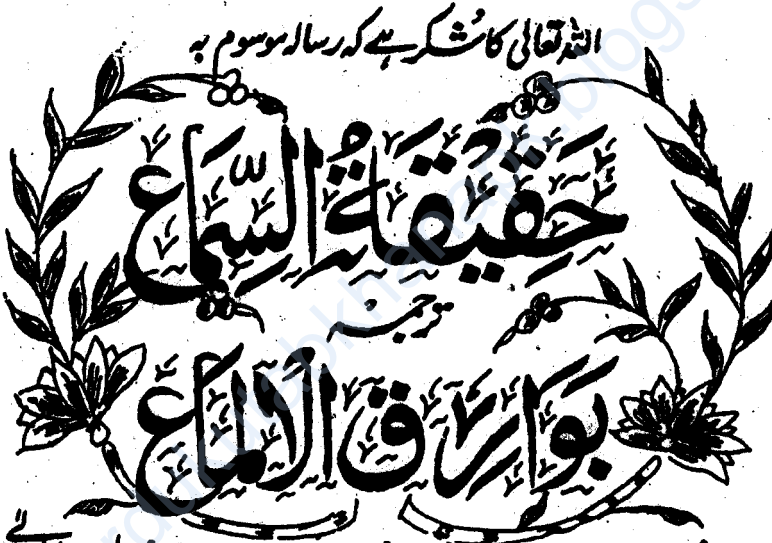 اللہ تعالی کا شکر ہے کہ رسالہ موسوم بہ
حَقِيقَةُ السِّمَاع
ترجمہ
بَوَارِق الالماع